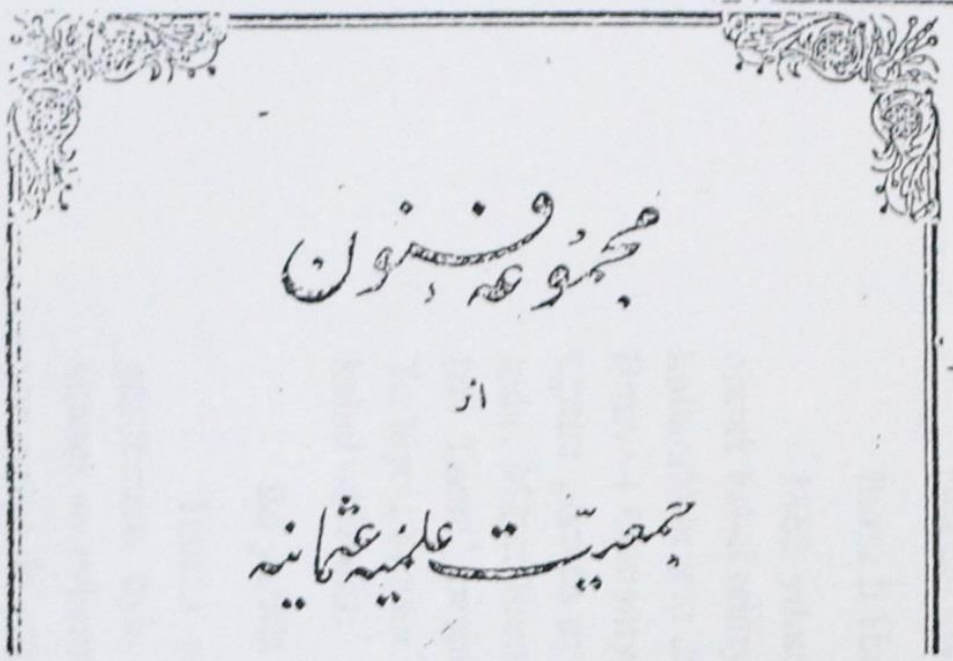 مجموعهٔ فنون
از
جمعیّت علمیه عثمانیه